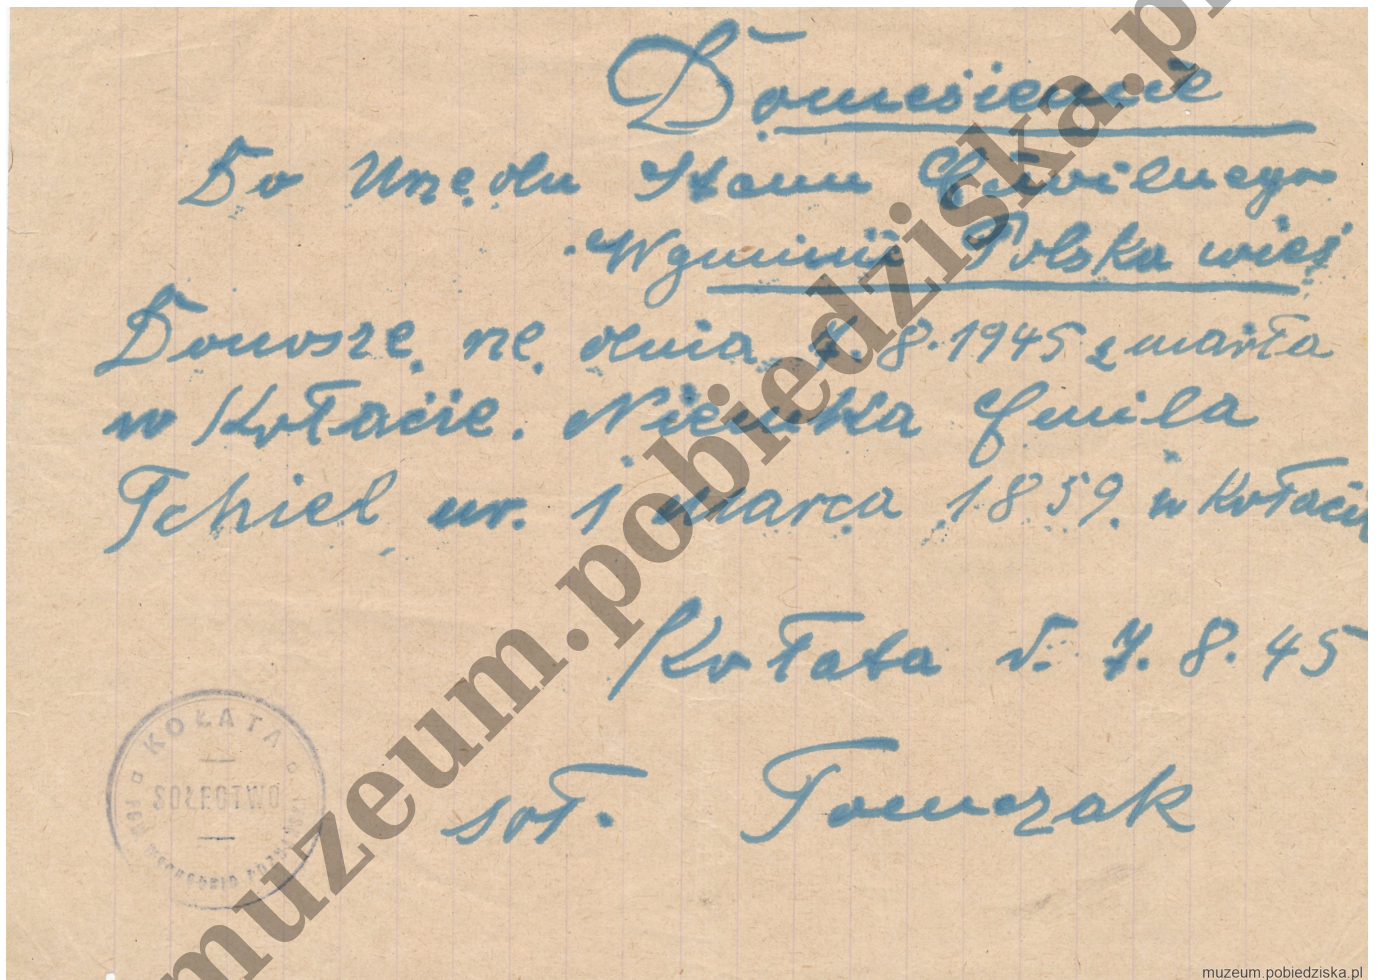 Doniesienie
Do Urzędu Stanu Cywilnego
W gminie Polska wieś
Donoszę rze dnia 7. 8. 1945 zmarła
w Kołacie. Niemka Emila
Tchiel ur. 1 marca 1859. w Kołacie
Kołata d. 7. 8. 45
soł. Tomczak
KOŁATA
SOŁECTWO
muzeum.pobiedziska.pl
muzeum.pobiedziska.pl